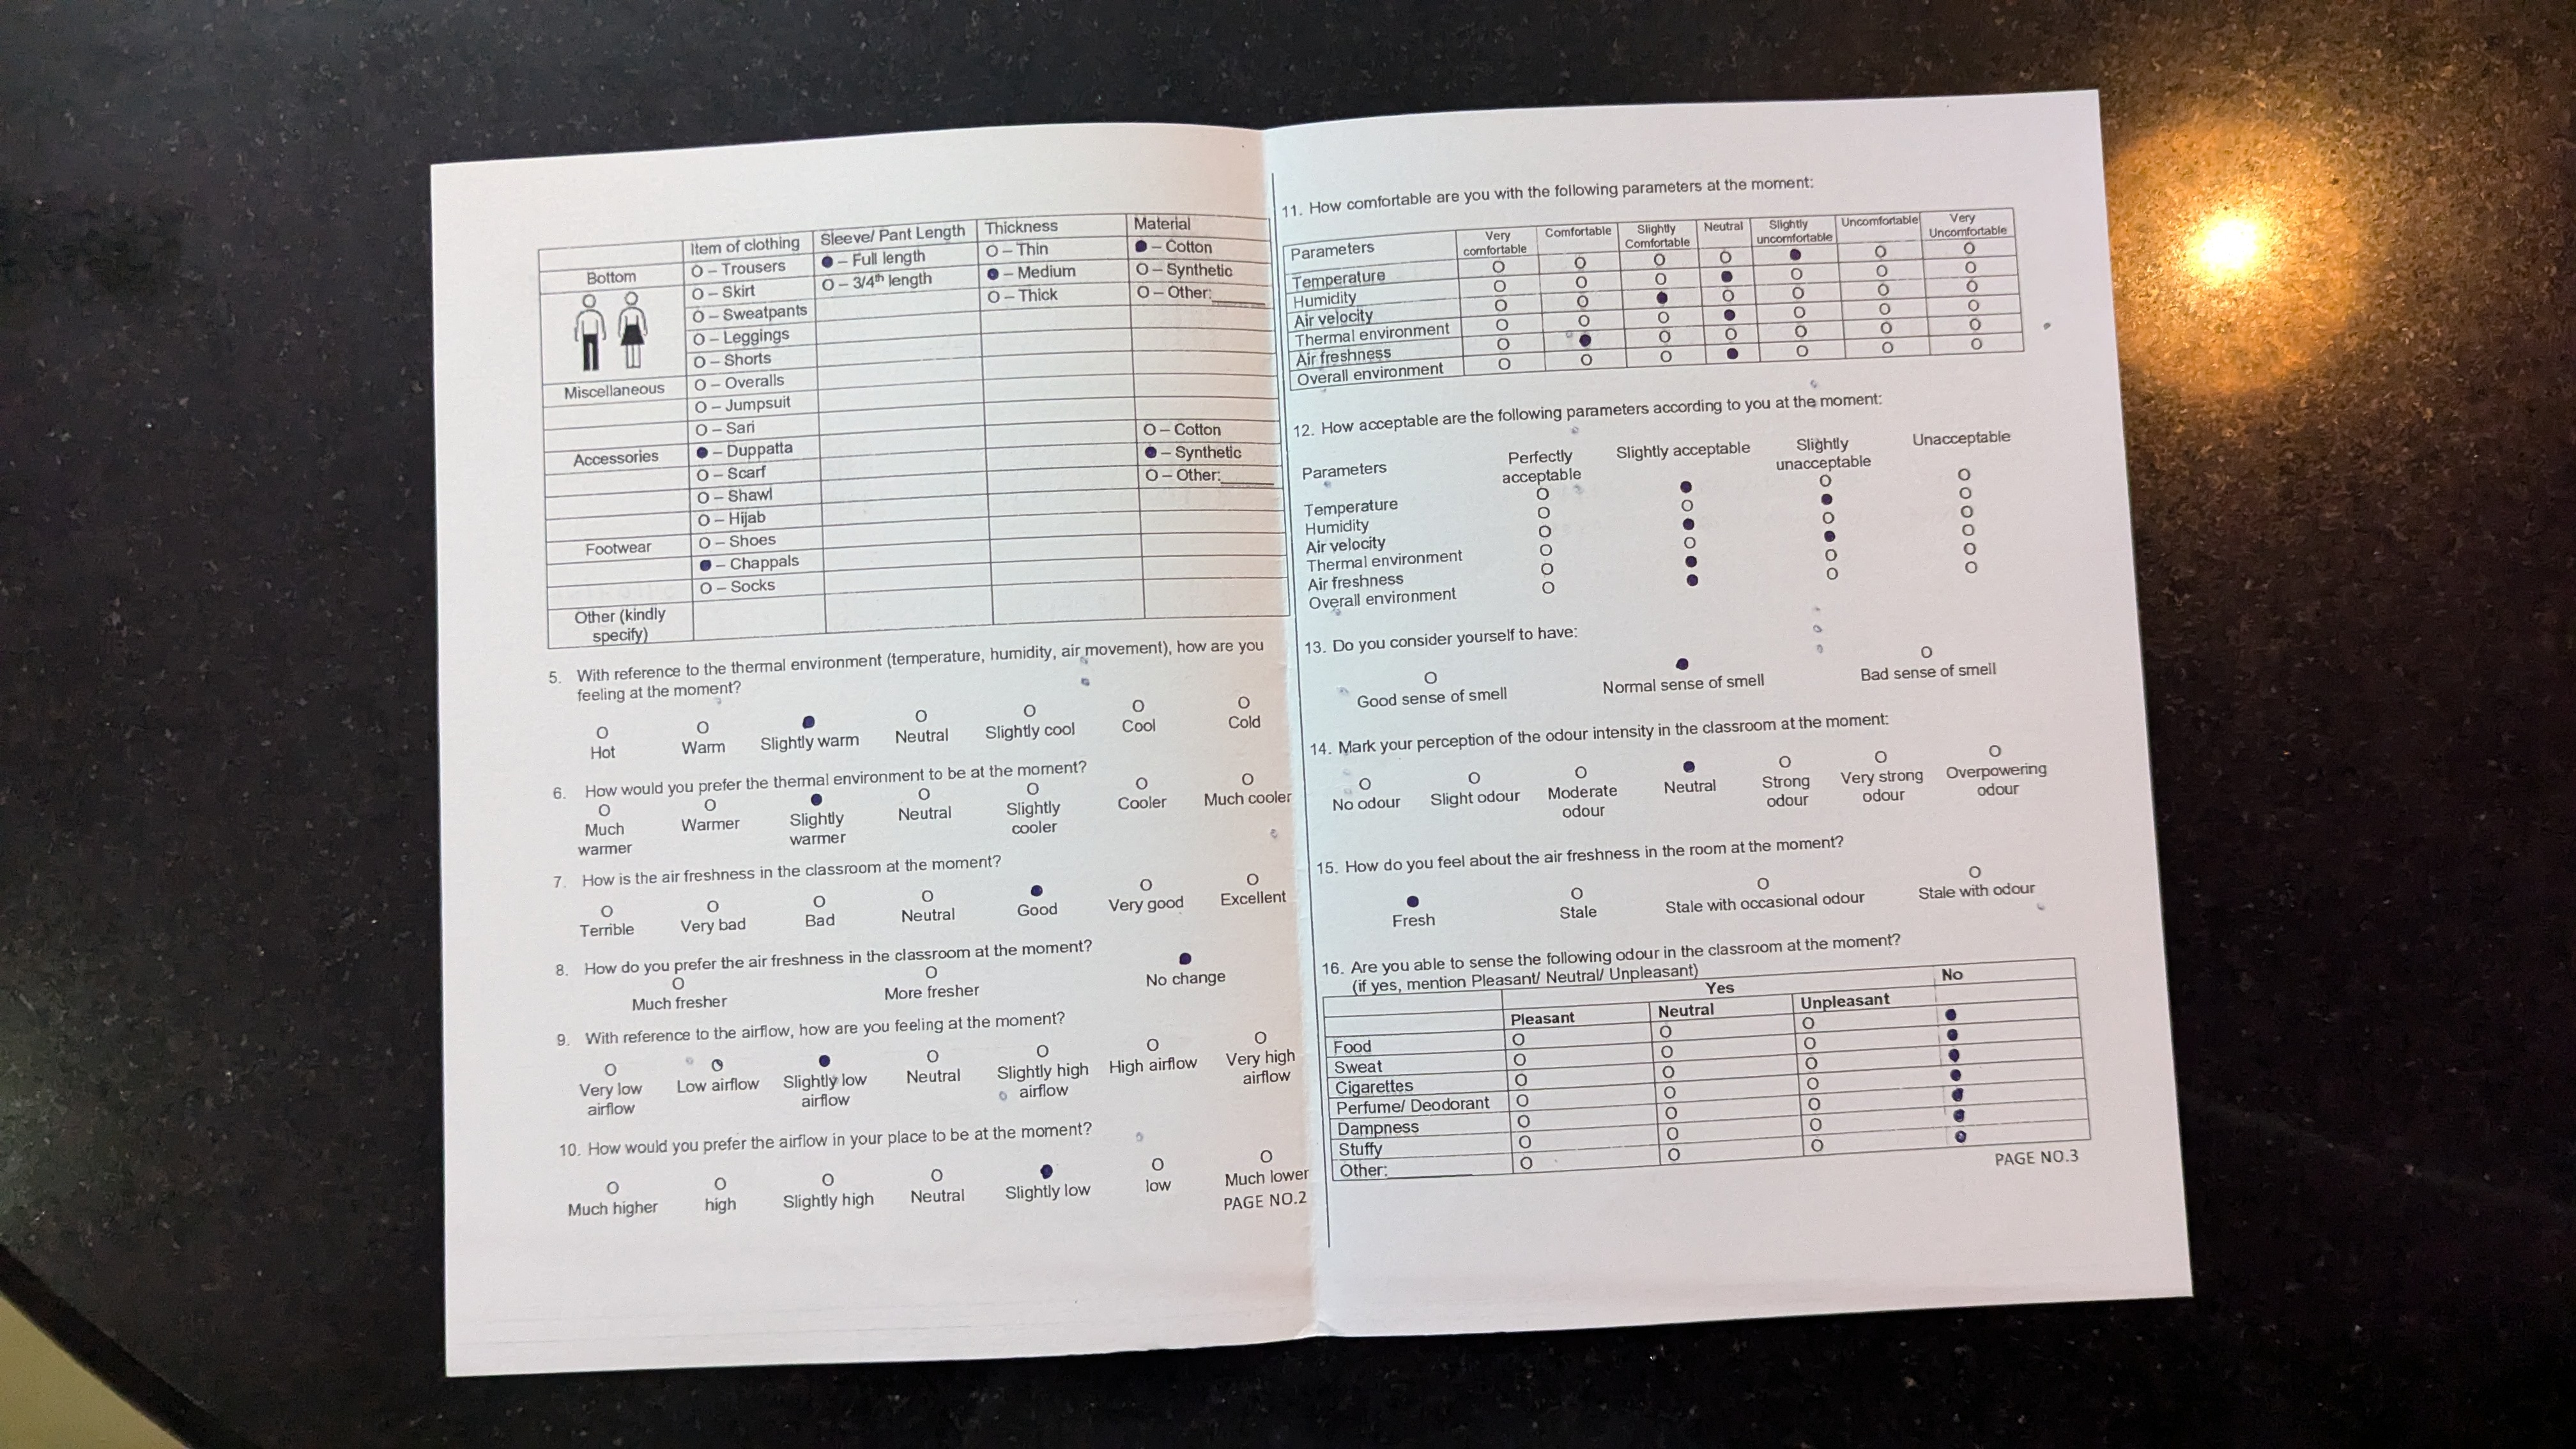 Item of clothing Sleeve/ Pant Length Thickness Material
Bottom O – Trousers ● – Full length O – Thin ● – Cotton
O – Skirt O – 3/4th length ● – Medium O – Synthetic
O – Sweatpants O – Thick O – Other:______
O – Leggings
O – Shorts
Miscellaneous O – Overalls
O – Jumpsuit
O – Sari O – Cotton
Accessories ● – Duppatta ● – Synthetic
O – Scarf O – Other:______
O – Shawl
O – Hijab
Footwear O – Shoes
● – Chappals
O – Socks
Other (kindly
specify)
5. With reference to the thermal environment (temperature, humidity, air movement), how are you
feeling at the moment?
O O ● O O O O
Hot Warm Slightly warm Neutral Slightly cool Cool Cold
6. How would you prefer the thermal environment to be at the moment?
O O ● O O O O
Much Warmer Slightly Neutral Slightly Cooler Much cooler
warmer warmer cooler
7. How is the air freshness in the classroom at the moment?
O O O O ● O O
Terrible Very bad Bad Neutral Good Very good Excellent
8. How do you prefer the air freshness in the classroom at the moment?
O O ●
Much fresher More fresher No change
9. With reference to the airflow, how are you feeling at the moment?
O O ● O O O O
Very low Low airflow Slightly low Neutral Slightly high High airflow Very high
airflow airflow airflow airflow
10. How would you prefer the airflow in your place to be at the moment?
O O O O ● O O
Much higher high Slightly high Neutral Slightly low low Much lower
PAGE NO.2
11. How comfortable are you with the following parameters at the moment:
Parameters Very Comfortable Slightly Neutral Slightly Uncomfortable Very
comfortable Comfortable uncomfortable Uncomfortable
Temperature O O O O ● O O
Humidity O O O ● O O O
Air velocity O O ● O O O O
Thermal environment O O O ● O O O
Air freshness O ● O O O O O
Overall environment O O O ● O O O
12. How acceptable are the following parameters according to you at the moment:
Parameters Perfectly Slightly acceptable Slightly Unacceptable
acceptable unacceptable
Temperature O ● O O
Humidity O O ● O
Air velocity O ● O O
Thermal environment O O ● O
Air freshness O ● O O
Overall environment O ● O O
13. Do you consider yourself to have:
O ● O
Good sense of smell Normal sense of smell Bad sense of smell
14. Mark your perception of the odour intensity in the classroom at the moment:
O O O ● O O O
No odour Slight odour Moderate Neutral Strong Very strong Overpowering
odour odour odour odour
15. How do you feel about the air freshness in the room at the moment?
● O O O
Fresh Stale Stale with occasional odour Stale with odour
16. Are you able to sense the following odour in the classroom at the moment?
(if yes, mention Pleasant/ Neutral/ Unpleasant)
Yes No
Pleasant Neutral Unpleasant
Food O O O ●
Sweat O O O ●
Cigarettes O O O ●
Perfume/ Deodorant O O O ●
Dampness O O O ●
Stuffy O O O ●
Other:__________ O O O ●
PAGE NO.3